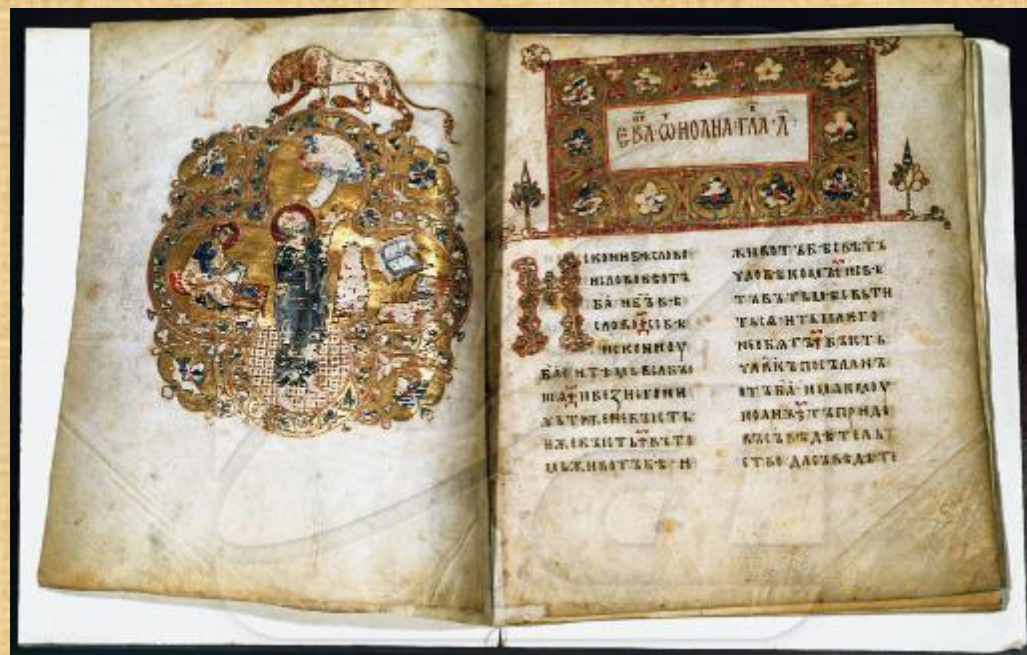 ЄВА·Ѡ ИОАНА·ГЛА·А҃·
ИСКОНИ БѢ СЛОВО
И СЛОВО БѢ ОТЪ
БА҃ И Б҃Ъ БѢ
СЛОВО СЕ БѢ
ИСКОНИ ОУ
БА҃ И ТѢМЬ ВЬСА БꙐ
ШѦ И БЕЖНЕГО НИ
ЧЬТОЖЕ НЕ БꙐСТЬ
ЕЖЕ БꙐСТЬ ВЪ ТО
МЬ ЖИВОТЪ БѢ И
ЖИВОТЪ БѢ СВѢТЪ
ЧЛОВѢКОМЪ И СВѢ
ТЪ ВЪ ТЬМѢ СВЬТИ
ТЬСѦ И ТЬМА ЕГО
НЕ ОБѦТЪ БꙐСТЬ
ЧЛ҃ВКЪ ПОСЪЛАНЪ
ОТЪ БА҃ ИМѦ ѤМОУ
ИОАНЪ ТЪ ПРИДЕ
ВЪ СЪВѢДѢТЕЛЬ
СТВО ДА СЪВѢДѢТЕ